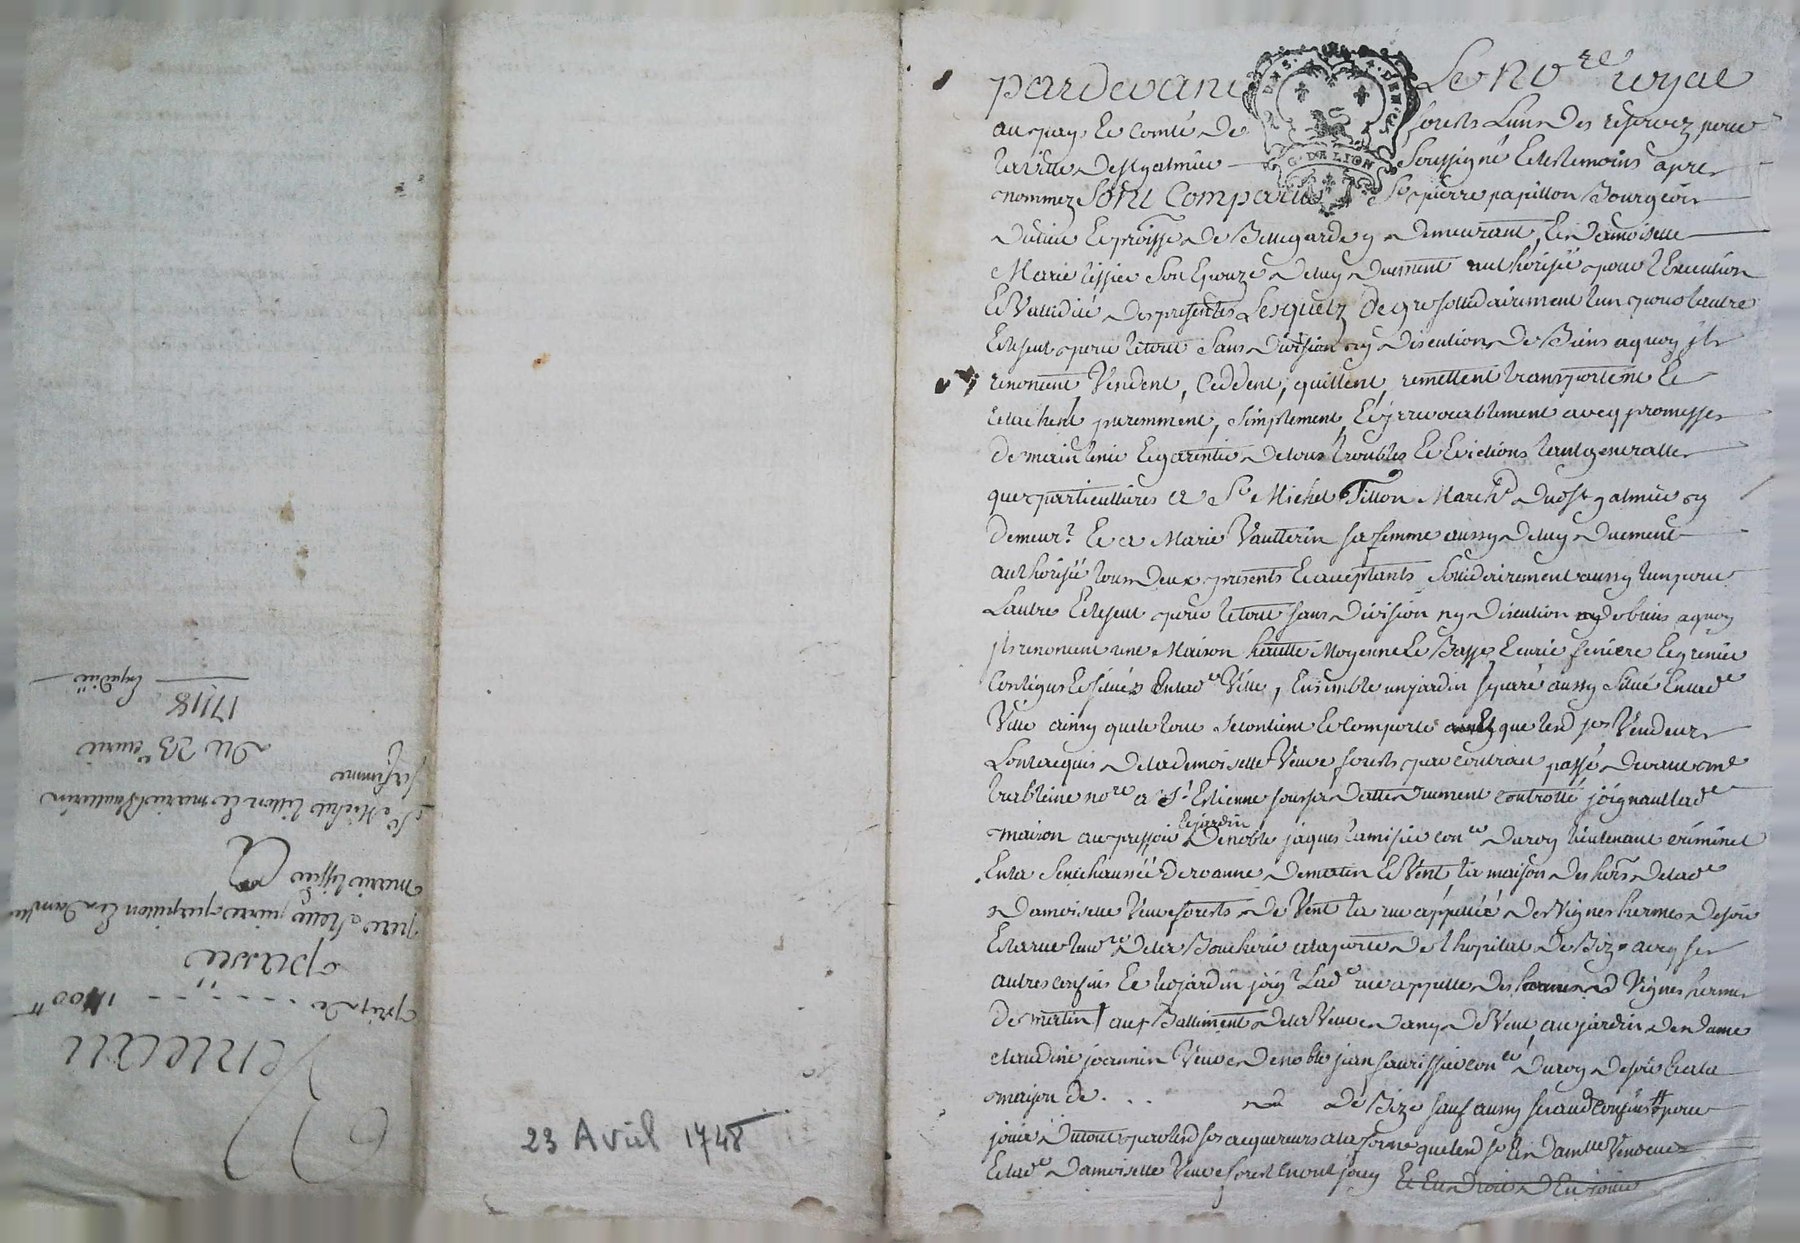 pardevant Le No.re royal
au pays Et comté De forests Lun Des reservez pour
la ville De St galmier Soussigné Et les temoins apres
nommez Sont Comparus Sr pierre papillon Bourgeois
Du lieu Et proisse De Bellegarde y Demeurant, Et Demoiselle
Marie tissier Son Epouze De luy Duement authorisée pour l'Execution
Et Validité Des presentes Lesquelz De gre solidairement lun pour lautre
Et le seul pour le tout Sans Division ny Discution De Biens a quoy jls
renoncent Vendent, Ceddent, quittent, remettent transportent Et
relachent purement, Simplement, Et jrrevocablement avecq promesses
De maintenir Et garentir De tous troubles Et Evictions tant generalles
que particullieres a Sr Michel Tillon March.d Du St galmier y
demeur.t Et a Marie Vautterin sa femme aussy De luy Duement
authorisée tous Deux presents Et acceptants Solidairement aussy lun pour
Lautre Et le seul pour le tout sans Division ny Discution de biens a quoy
jls renoncent une Maison hautte Moyenne Et Basse, Ecurie feniere Et grenier
Contigus Et situés En lad.e Ville, Ensemble un jardin separé aussy situé En lad.e
Ville ainsy que le tout Se contient Et Comporte que lesd srs Vendeurs
Lont acquis De la demoiselle Veuve forests par contrat passé Devant me
no.re a St Estienne Duement Controllé joignant lad.e
maison au pressoir Et jardin De noble jaques lamisier con.er Du roy lieutenant criminel
En la Senechaussée De roanne De matin Et Vent la maison Des hers De lad.e
Damoiselle Veuve forests De Vent la rue appellée Des Vignes hermes De soir
Et la rue De la Boucherie a la porte De l'hopital De Bize avecq ses
autres confins Et le jardin joig.t Lad.e rue appellee Des Vignes hermes
De matin aux Battiments De la Veuve Dany De Vent, au jardin De Dame
claudine jeannin Veuve De noble jean con.er Du roy De soir Et a la
maison de . . . De Bize sauf aussy ses autres confins pour
jouir Du tout par lesd srs acquereurs a la forme que lesd sr Et Damlle Vendeurs
Et lad.e Damoiselle Veuve forest En ont jouy Et En Droit D En jouir
23 Avril 1748
Vente au
prix de . . . . 1100 tt
passée
par sieur pierre papillon Et Damlle
marie tissier
A
Sr Michel tillon Et marie Vautterin
sa femme
Du 23e avril
1748
Expediée